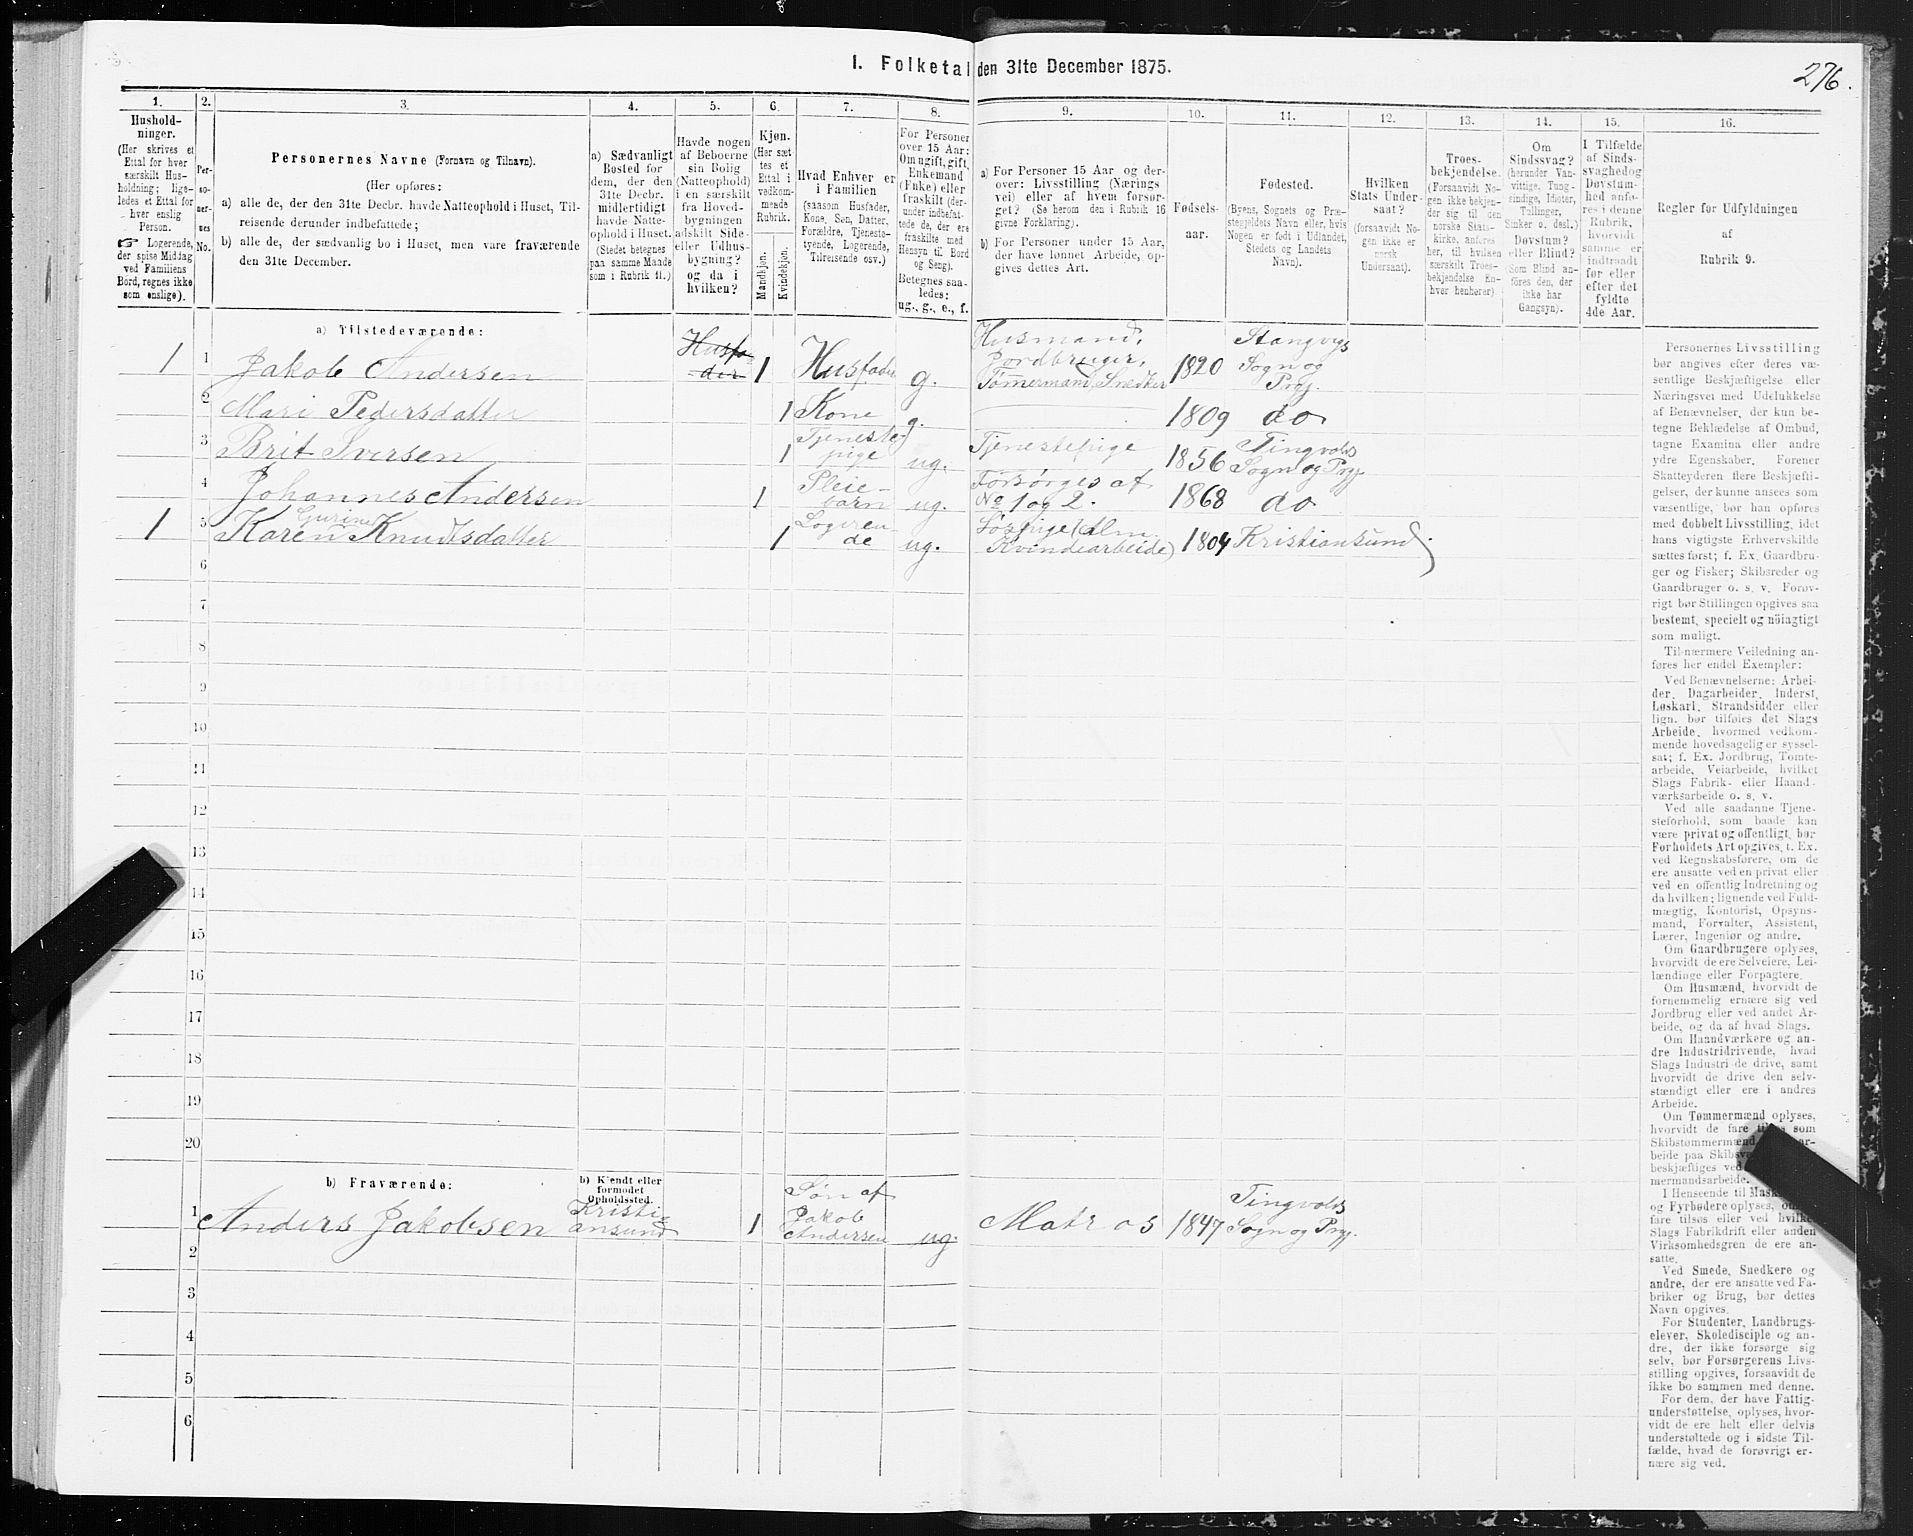 1. Folketal den 31te December 1875.
276.
1.
2.
3.
4.
5.
6.
7.
8.
9.
10.
11.
12.
13.
14.
15.
16.
Hushold-
ninger.
(Her skrives et
Ettal for hver
særskilt Hus-
holdning; lige-
ledes et Ettal for
hver enslig
Person.
☞ Logerende,
der spise Middag
ved Familiens
Bord, regnes ikke
som enslige).
Per-
so-
ner-
nes
No.
Personernes Navne (Fornavn og Tilnavn).
(Her opføres:
a) alle de, der den 31te Decbr. havde Natteophold i Huset, Til-
reisende derunder indbefattede;
b) alle de, der sædvanlig bo i Huset, men vare fraværende
den 31te December.
a) Sædvanligt
Bosted for
dem, der den
31te Decbr.
midlertidigt
havde Natte-
ophold i Huset.
(Stedet betegnes
paa samme Maade
som i Rubrik 11.)
Havde nogen
af Beboerne
sin Bolig
(Natteophold)
i en særskilt
fra Hoved-
bygningen
adskilt Side-
eller Udhus-
bygning?
og da i
hvilken?
Kjøn.
(Her sæt-
tes et
Ettal i
vedkom-
mende
Rubrik.
Mandkjøn.
Kvindekjøn.
Hvad Enhver er
i Familien
(saasom Husfader,
Kone, Søn, Datter,
Forældre, Tjeneste-
tyende, Logerende,
Tilreisende osv.)
For Personer
over 15 Aar:
Om ugift, gift,
Enkemand
(Enke) eller
fraskilt (der-
under indbefat-
tede de, der ere
fraskilte med
Hensyn til Bord
og Seng).
Betegnes saa-
ledes:
ug., g., e., f.
a) For Personer 15 Aar og der-
over: Livsstilling (Nærings
vei) eller af hvem forsør-
get? (Se herom den i Rubrik 16
givne Forklaring).
b) For Personer under 15 Aar,
der have lønnet Arbeide, op-
gives dettes Art.
Fødsels-
aar.
Fødested.
(Byens, Sognets og Præ-
stegjeldets Navn eller, hvis
Nogen er født i Udlandet,
Stedets og Landets
Navn).
Hvilken
Stats Under-
saat?
(forsaavidt No-
gen ikke er
norsk
Undersaat).
Troes-
bekjendelse.
(Forsaavidt No-
gen ikke bekjen-
der sig til den
norske Stats-
kirke, anføres
her, til hvilken
særskilt Troes-
bekjendelse En-
hver henhører).
Om
Sindssvag?
(herunder Van-
vittige, Tung-
sindige, Idioter,
Tullinger,
Sinker o. desl.)
Døvstum?
eller Blind?
(Som Blind an-
føres den, der
ikke har
Gangsyn).
I Tilfælde
af Sinds-
svaghed og
Døvstum-
hed anfø-
res i denne
Rubrik,
hvorvidt
samme er
indtraadt
før eller
efter det
fyldte
4de Aar.
Regler for Udfyldningen
af
Rubrik 9.
a) Tilstedeværende:
1 1 Jakob Andersen Husfa-
der 1 Husfader g. Husmand,
Jordbruger,
Tømmermand, Snedker 1820 Stangvigs
Sogn og
Prgj.
2 Mari Pedersdatter 1 Kone g. 1809 do
3 Brit Iversen 1 Tjeneste-
pige ug. Tjenestepige 1856 Tingvolds
Sogn og Prgj.
4 Johannes Andersen 1 Pleie-
barn ug. Forsørges af
No 1 og 2. 1868 do
1 5 Karen Gurine Knudtsdatter 1 Logeren-
de ug. Løspige (Alm.
Kvindearbeide) 1804 Kristiansund.
6
7
8
9
10
11
12
13
14
15
16
17
18
19
20
b) Fraværende:
b) Kjendt eller
formodet
Opholdssted.
1 Anders Jakobsen Kristi-
ansund 1 Søn af
Jakob
Andersen ug. Matros 1847 Tingvolds
Sogn og Prgj.
2
3
4
5
6
Personernes Livsstilling
bør angives efter deres væ-
sentlige Beskjæftigelse eller
Næringsvei med Udelukkelse
af Benævnelser, der kun be-
tegne Beklædelse af Ombud,
tagne Examina eller andre
ydre Egenskaber. Forener
Skatteyderen flere Beskjæfti-
gelser, der kunne ansees som
væsentlige, bør han opføres
med dobbelt Livsstilling, idet
hans vigtigste Erhvervskilde
sættes først; f. Ex. Gaardbru-
ger og Fisker; Skibsreder og
Gaardbruger o. s. v. Forøv-
rigt bør Stillingen opgives saa
bestemt, specielt og nöiagtigt
som muligt.
Til nærmere Veiledning an-
føres her endel Exempler:
Ved Benævnelserne: Arbei-
der, Dagarbeider, Inderst,
Løskarl, Strandsidder eller
lign. bør tilføies det Slags
Arbeide, hvormed vedkom-
mende hovedsagelig er syssel-
sat; f. Ex. Jordbrug, Tomte-
arbeide, Veiarbeide, hvilket
Slags Fabrik- eller Haand-
værksarbeide o. s. v.
Ved alle saadanne Tjene-
steforhold, som baade kan
være privat og offentligt, bør
Forholdets Art opgives, t. Ex.
ved Regnskabsførere, om de
ere ansatte ved en privat eller
ved en offentlig Indretning og
da hvilken; lignende ved Fuld-
mægtig, Kontorist, Opsyns-
mand, Forvalter, Assistent,
Lærer, Ingeniør og andre.
Om Gaardbrugere oplyses,
hvorvidt de ere Selveiere, Lei-
lændinge eller Forpagtere.
Om Husmænd, hvorvidt de
fornemmelig ernære sig ved
Jordbrug eller ved andet Ar-
beide, og da af hvad Slags.
Om Haandværkere og an-
dre Industridrivende, hvad
Slags Industri de drive, samt
hvorvidt de drive den selv-
stændigt eller ere i andres
Arbeide.
Om Tømmermænd oplyses,
hvorvidt de fare som
Skibstømmermænd
beide paa
beskjæftiges ved
mermandsarbeide.
I Henseende til
og Fyrbødere oplyses,
fare tilsøs eller ved hvilke
Slags Fabrikdrift eller anden
Virksomhedsgren de ere an-
satte.
Ved Smede, Snedkere og
andre, der ere ansatte ved Fa-
briker og Brug, bør dettes
Navn opgives.
For Studenter, Landbrugs-
elever, Skoledisciple og an-
dre, der ikke forsørge sig
selv, bør Forsørgerens Livs-
stilling opgives, forsaavidt de
ikke bo sammen med denne.
For dem, der have Fattig-
understøttelse, oplyses, hvor-
vidt de ere helt eller delvis
understøttede og i sidste Til-
fælde, hvad de forøvrigt er-
nære sig ved.